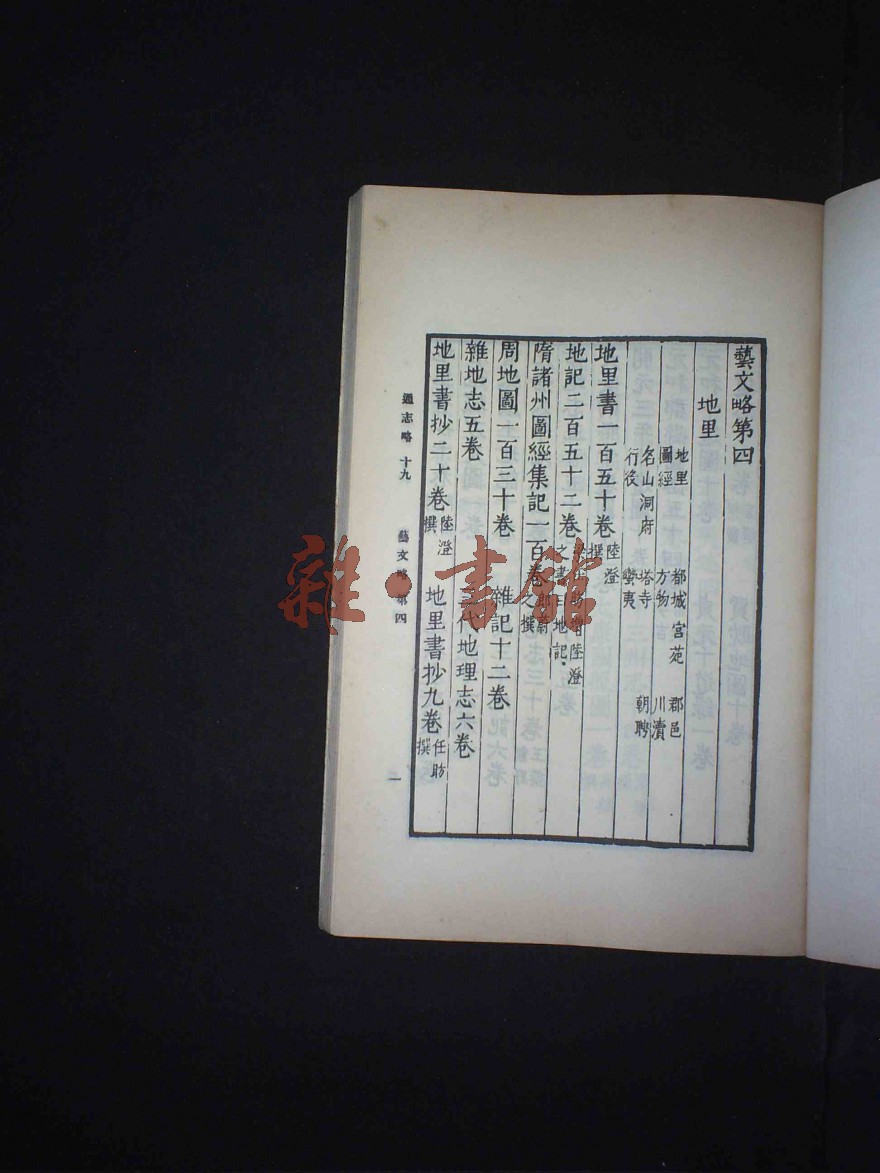 藝文略第四
地里
地里 都城宮苑 郡邑
圖經 方物 川瀆
名山洞府 塔寺 朝聘
行役 蠻夷
地里書一百五十卷 陸澄撰
地記二百五十二卷 陸澄之書 地記
隋諸州圖經集記一百卷 郎蔚之撰
周地圖一百三十卷 雜記十二卷
雜地志五卷 三代地理志六卷
地里書抄二十卷 陸澄撰 地里書抄九卷 任昉撰
通志略 十九 藝文略第四 一
雜·書館